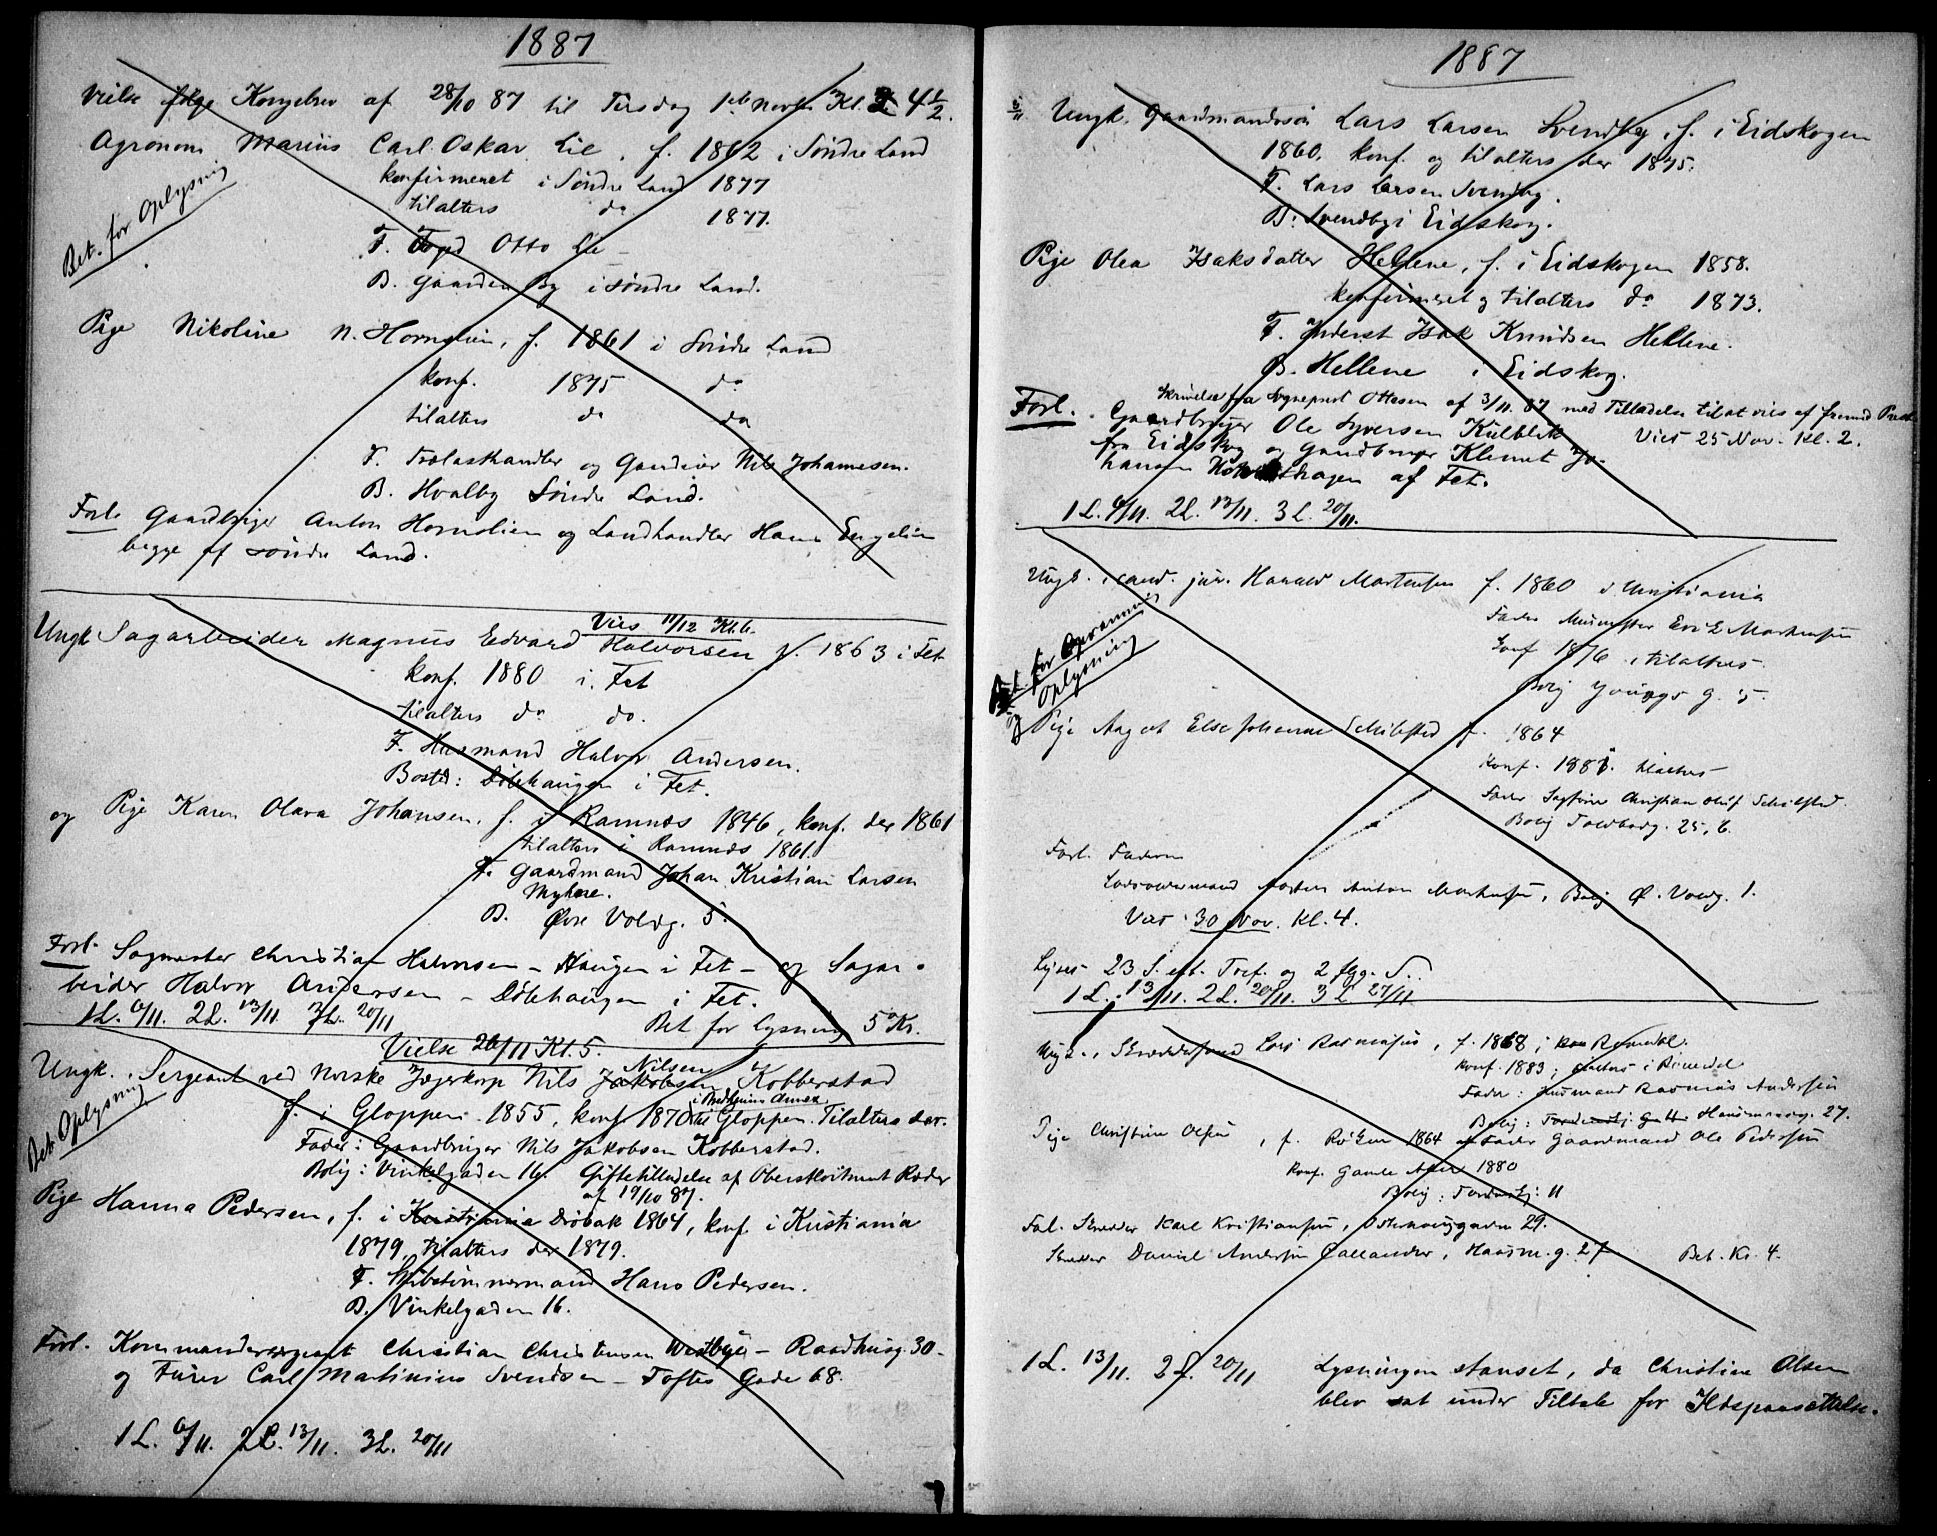 1887
Vielse følge Kongebrev af 28/10 87 til Tirsdag 1ste Novbr Kl. 4½.
Agronom Marius Carl Oskar Lie, f. 1862 i Søndre Land
konfirmeret i Søndre Land 1877
tilalters do 1877.
Bet. for Oplysning
F. Foged Otto Lie
B. Gaarden By i Søndre Land.
Pige Nikoline N. Hornslien, f. 1861 i Søndre Land
konf. 1875 do
tilalters do do
F. Trælasthandler og Gaardeier Nils Johannesen.
B. Hvalby Søndre Land.
Forl. Gaardbruger Anton Hornslien og Landhandler Hans Engelien
begge af Søndre Land.
Vies 11/12 Kl. 6.
Ungk Sagarbeider Magnus Edvard Halvorsen f. 1863 i Fet
konf. 1880 i Fet
tilalters do do.
F. Husmand Halvor Andersen.
Bosted: Dølehaugen i Fet.
og Pige Karen Olava Johansen, f. i Ramnæs 1846, konf. der 1861
tilalters i Ramnæs 1861.
F. Gaardmand Johan Kristian Larsen
Myhre.
B. Øvre Voldg. 5.
Forl. Sagmester Christian Halvorsen – Haugen i Fet – og Sagar-
beider Halvor Andersen – Dølehaugen i Fet.
1L. 6/11. 2L. 13/11 3L. 20/11
Bet for Lysning 5 Kr.
Vielse 26/11 Kl. 5.
Ungk. Sergeant ved Norske Jægerkorp Nils Jakobsen Nilsen Kobberstad
f. i Gloppen 1855, konf. 1870 i Bredheims Annex til Gloppen. Tilalters der.
Bet. Oplysning
Fader: Gaardbruger Nils Jakobsen Kobberstad.
Bolig: Vinkelgaden 16. Giftetilladelse af Oberstløitnant Ræder
af 19/10 87.
Pige Hanna Pedersen, f. i Kristiania Drøbak 1864, konf. i Kristiania
1879, tilalters der 1879.
F. Skibstømmermand Hans Pedersen.
B. Vinkelgaden 16.
Forl. Kommandersergeant Christian Christensen Westbye – Raadhusg. 30 –
og Furer Carl Martinius Svendsen – Toftes Gade 68.
1L. 6/11. 2L. 13/11. 3L. 20/11
1887
5/11 Ungk. Gaardmandssøn Lars Larsen Svendby, f. i Eidskogen
1860, konf. og tilalters der 1875.
F. Lars Larsen Svendby.
B: Svendby i Eidskog.
Pige Olea Isaksdatter Hellene, f. i Eidskogen 1858.
konfirmeret og tilalters do 1873.
F. Inderst Isak Knudsen Hellene.
B. Hellene i Eidskog.
Skrivelse fra Sogneprest Ottesen af 3/11 87 med Tilladelse til at vies af fremmed Prest
Forl. Gaardbruger Ole Syversen Kulblik Vies 25 Nov. Kl. 2.
fra Eidskog og Gaardbruger Klemet Jo-
hansen af Fet.
1L. 6/11. 2L. 13/11. 3L. 20/11.
Ungk. cand. jur. Harald Mortensen f. 1860 i Christiania
Fader Murmester Erik Mortensen
Konf 1876, tilalters
Bolig Youngs g. 5
Bet. for Oplysning
og Pige Aagot Else Johanne Schibsted f. 1864
Konf. 1881. tilalters
Fader Christian Oluf Schibsted.
Bolig Toldbodg. 25, 6.
Forl. Faderen
Morten Anton Mortensen, Bolig Ø. Voldg. 1.
Vies 30 Nov. Kl. 4.
Lyses 23 S. eft. Tref. og 2 flg. S.
1L. 13/11. 2L. 20/11. 3L 27/11
Ungk., Skræddersvend Lars Rasmussen, f. 1868 i Romedal.
konf. 1883, tilalters i Romedal
Fader: Husmand Rasmus Anderssen
Bolig: Hausmannsg. 27.
Pige Christine Olsen, f. Røken 1864 Fader Gaardmand Ole Pedersen
Konf. Gamle Aker 1880
Bolig: 11
Forl. Skrædder Karl Kristiansen, Osterhausgaden 29.
Skrædder Daniel Andersen Callander, Hausm. g. 27 Bet. Kr. 4.
1L. 13/11. 2L. 20/11 Lysningen stanset, da Christine Olsen
blev sat under Tiltale for Ildspaasættelse.